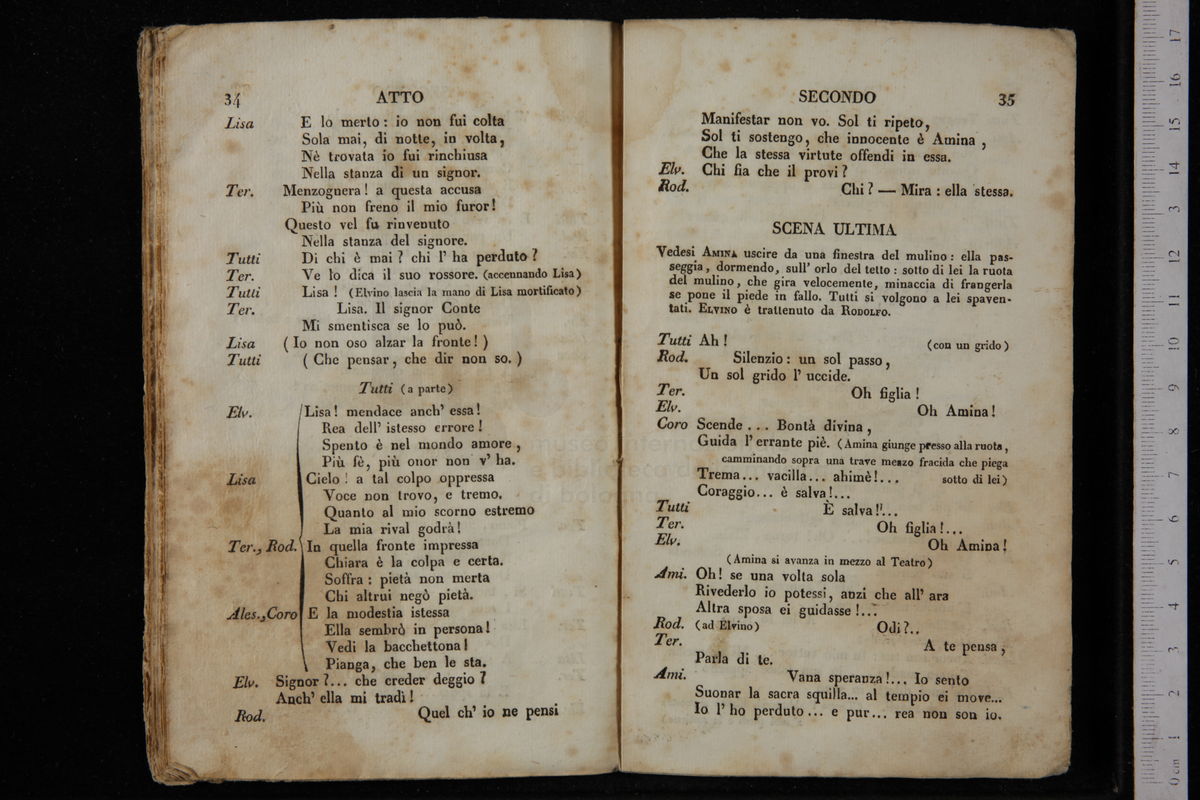 34
ATTO
Lisa E lo merto : io non fui colta
Sola mai, di notte, in volta,
Nè trovata io fui rinchiusa
Nella stanza di un signor.
Ter. Menzognera ! a questa accusa
Più non freno il mio furor !
Questo vel fu rinvenuto
Nella stanza del signore.
Tutti Di chi è mai ? chi l' ha perduto ?
Ter. Ve lo dica il suo rossore. (accennando Lisa)
Tutti Lisa ! (Elvino lascia la mano di Lisa mortificato)
Ter. Lisa. Il signor Conte
Mi smentisca se lo può.
Lisa ( Io non oso alzar la fronte ! )
Tutti ( Che pensar, che dir non so. )
Tutti (a parte)
Elv. Lisa ! mendace anch' essa !
Rea dell' istesso errore !
Spento è nel mondo amore ,
Più fè, più onor non v' ha.
Lisa Cielo ! a tal colpo oppressa
Voce non trovo, e tremo.
Quanto al mio scorno estremo
La mia rival godrà !
Ter., Rod. In quella fronte impressa
Chiara è la colpa e certa.
Soffra : pietà non merta
Chi altrui negò pietà.
Ales., Coro E la modestia istessa
Ella sembrò in persona !
Vedi la bacchettona !
Pianga, che ben le sta.
Elv. Signor ?... che creder deggio ?
Anch' ella mi tradì !
Rod. Quel ch' io ne pensi
SECONDO
35
Manifestar non vo. Sol ti ripeto,
Sol ti sostengo, che innocente è Amina ,
Che la stessa virtute offendi in essa.
Elv. Chi fia che il provi ?
Rod. Chi ? — Mira : ella stessa.
SCENA ULTIMA
Vedesi AMINA uscire da una finestra del mulino : ella pas-
seggia, dormendo, sull' orlo del tetto : sotto di lei la ruota
del mulino, che gira velocemente, minaccia di frangerla
se pone il piede in fallo. Tutti si volgono a lei spaven-
tati. ELVINO è trattenuto da RODOLFO.
Tutti Ah ! (con un grido)
Rod. Silenzio : un sol passo ,
Un sol grido l' uccide.
Ter. Oh figlia !
Elv. Oh Amina !
Coro Scende ... Bontà divina ,
Guida l' errante piè. (Amina giunge presso alla ruota,
camminando sopra una trave mezzo fracida che piega
Trema... vacilla... ahimè !... sotto di lei)
Coraggio... è salva !...
Tutti È salva !'...
Ter. Oh figlia !...
Elv. Oh Amina !
(Amina si avanza in mezzo al Teatro)
Ami. Oh ! se una volta sola
Rivederlo io potessi, anzi che all' ara
Altra sposa ei guidasse !...
Rod. (ad Elvino) Odi ?..
Ter. A te pensa ,
Parla di te.
Ami. Vana speranza !... Io sento
Suonar la sacra squilla... al tempio ei move...
Io l' ho perduto ... e pur... rea non son io.
museo interna
e biblioteca d
di bologna
0 cm 1 2 3 4 5 6 7 8 9 10 11 12 3 14 15 16 17